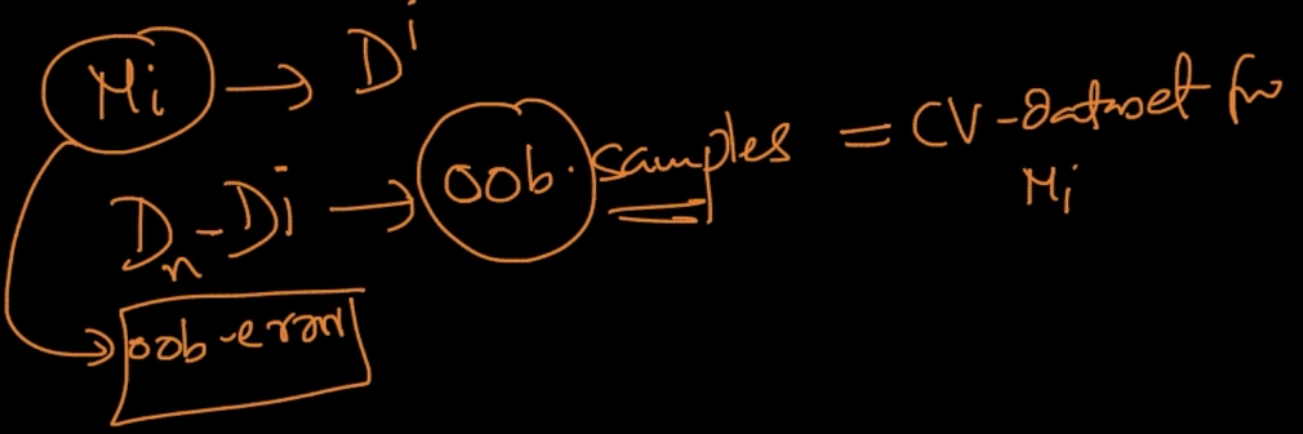 Mi → Di
Dn - Di → oob. samples = CV-Dataset for
Mi
oob-error